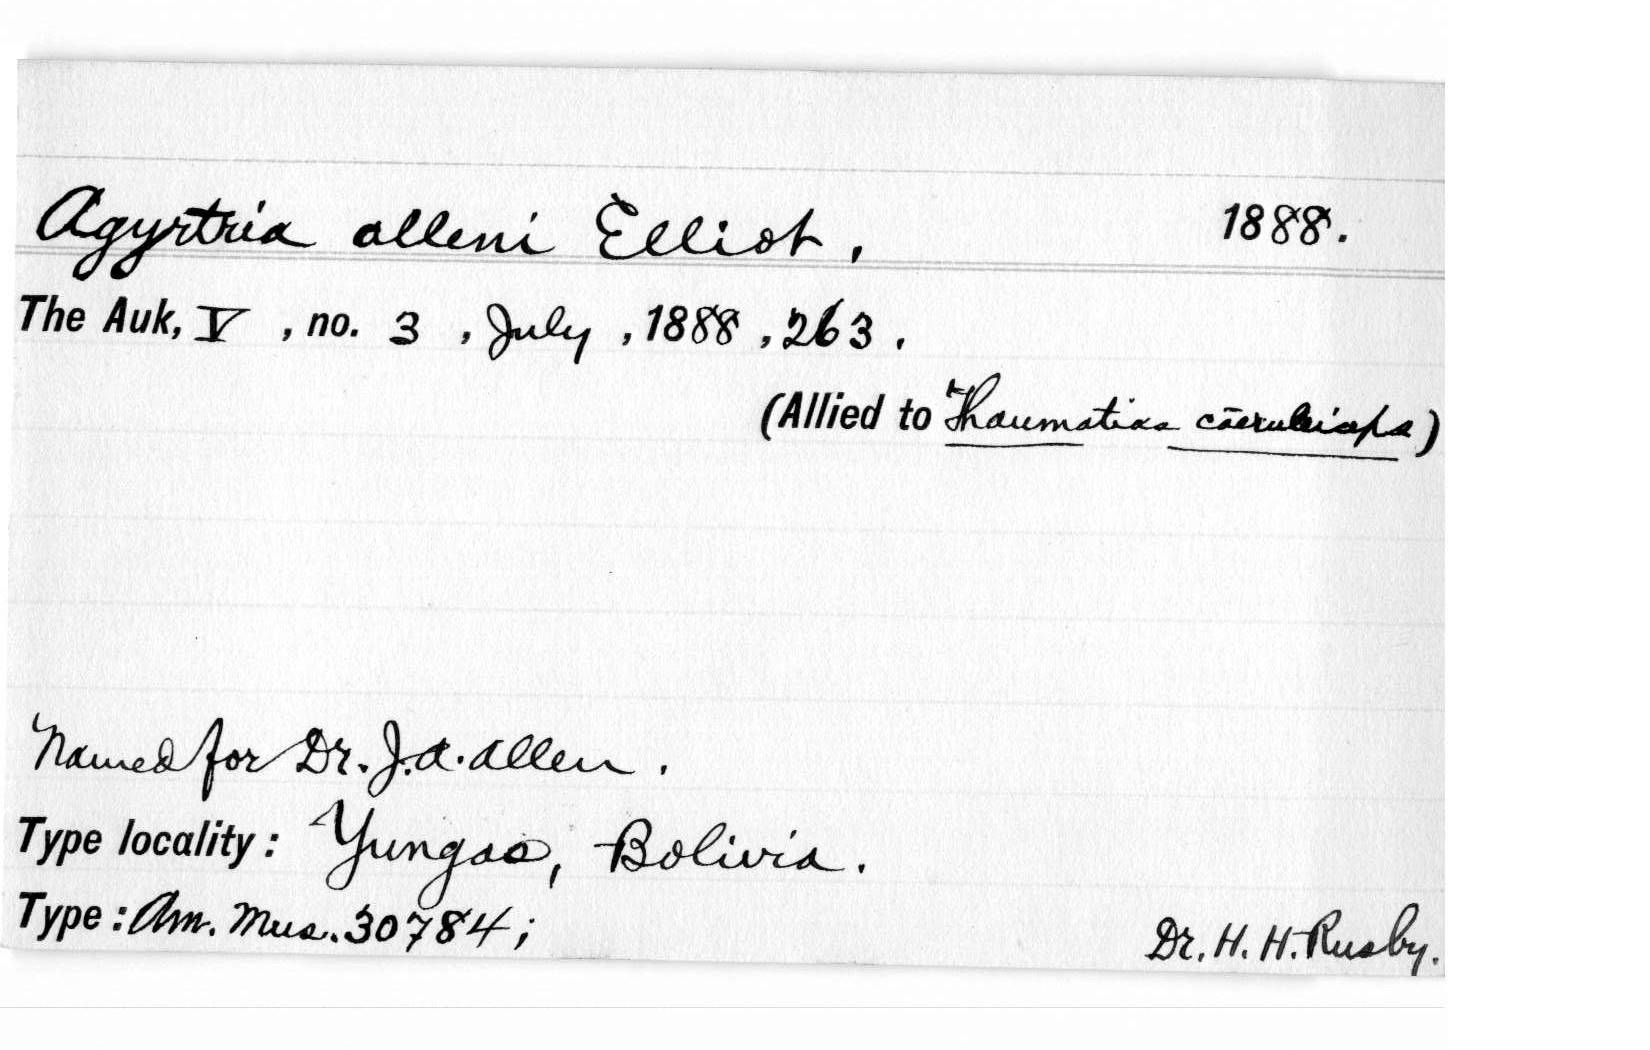 Agyrtria alleni Elliot, 1888.
The Auk, V, no. 3, July, 1888, 263.
(Allied to Thaumatias cāeruleiceps)
Named for Dr. J. A. Allen.
Type locality: Yungas, Bolivia.
Type: Am. Mus. 30784; Dr. H. H. Rusby.